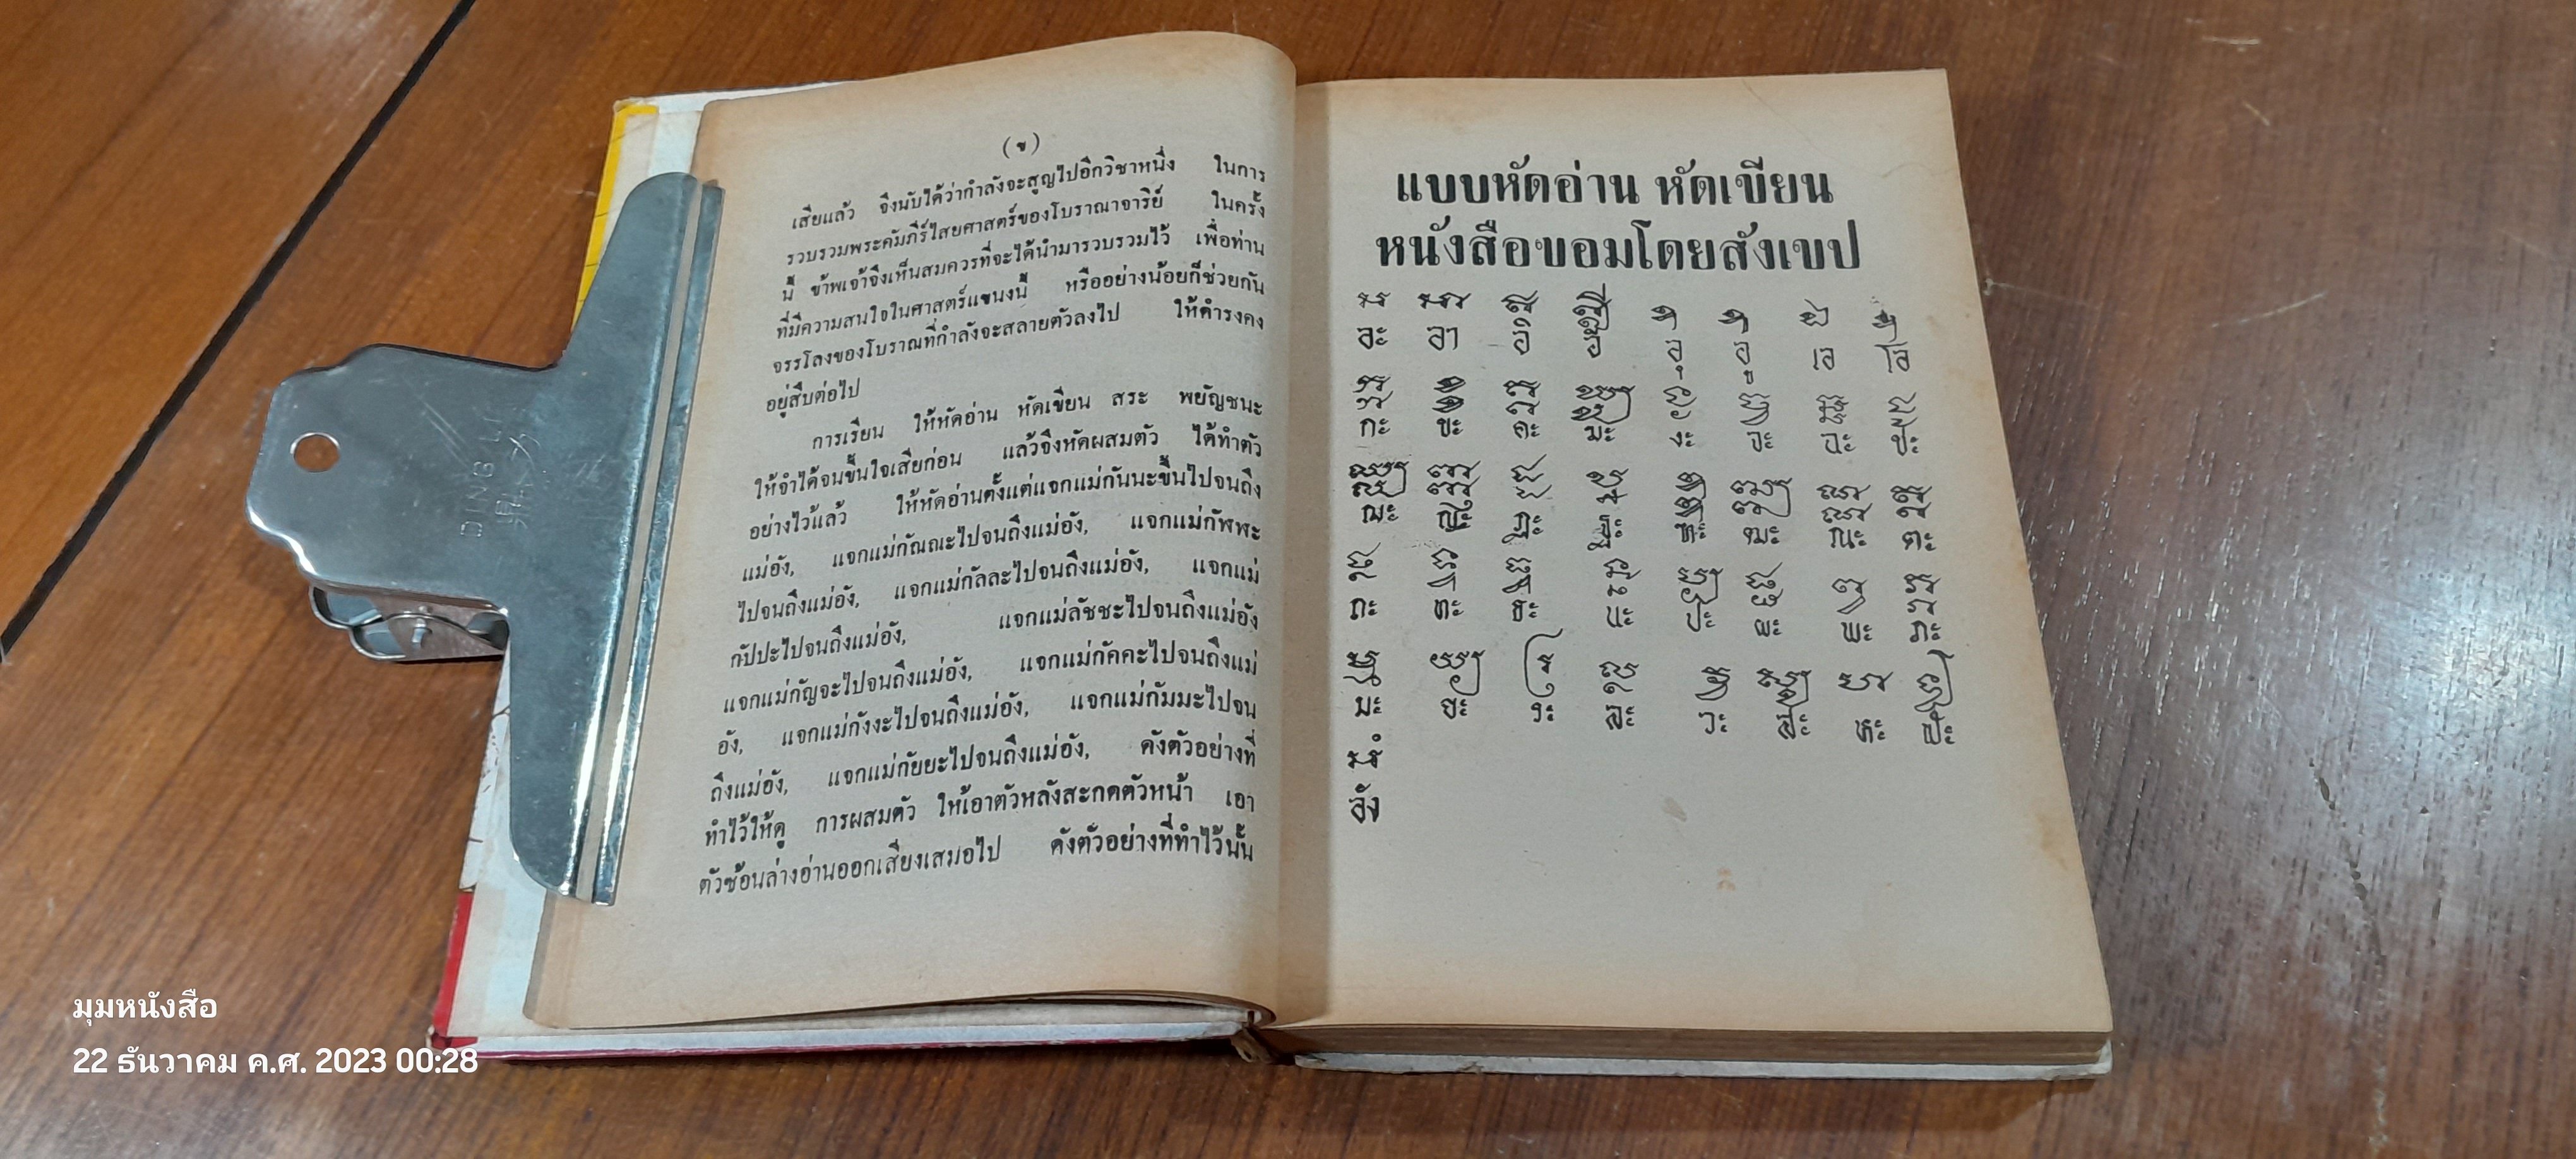 (ข)
เสียแล้ว จึงนับได้ว่ากำลังจะสูญไปอีกวิชาหนึ่ง ในการ
รวบรวมพระคัมภีร์ไสยศาสตร์ของโบราณาจาริย์ ในครั้ง
นี้ ข้าพเจ้าจึงเห็นสมควรที่จะได้นำมารวบรวมไว้ เพื่อท่าน
ที่มีความสนใจในศาสตร์แขนงนี้ หรืออย่างน้อยก็ช่วยกัน
จรรโลงของโบราณที่กำลังจะสลายตัวลงไป ให้ดำรงคง
อยู่สืบต่อไป
การเรียน ให้หัดอ่าน หัดเขียน สระ พยัญชนะ
ให้จำได้จนขึ้นใจเสียก่อน แล้วจึงหัดผสมตัว ได้ทำตัว
อย่างไว้แล้ว ให้หัดอ่านตั้งแต่แจกแม่กันนะขึ้นไปจนถึง
แม่อัง, แจกแม่กัณณะไปจนถึงแม่อัง, แจกแม่กัพพะ
ไปจนถึงแม่อัง, แจกแม่กัลละไปจนถึงแม่อัง, แจกแม่
กัปปะไปจนถึงแม่อัง, แจกแม่ลัชชะไปจนถึงแม่อัง
แจกแม่กัญจะไปจนถึงแม่อัง, แจกแม่กัคคะไปจนถึงแม่
อัง, แจกแม่กังงะไปจนถึงแม่อัง, แจกแม่กัมมะไปจน
ถึงแม่อัง, แจกแม่กัยยะไปจนถึงแม่อัง, ดังตัวอย่างที่
ทำไว้ให้ดู การผสมตัว ให้เอาตัวหลังสะกดตัวหน้า เอา
ตัวซ้อนล่างอ่านออกเสียงเสมอไป ดังตัวอย่างที่ทำไว้นั้น
แบบหัดอ่าน หัดเขียน
หนังสือขอมโดยสังเขป
อะ อา อิ อี อุ อู เอ โอ
กะ ขะ คะ ฆะ งะ จะ ฉะ ชะ
ฌะ ญะ ฏะ ฐะ ฑะ ฒะ ณะ ตะ
ถะ ทะ ธะ นะ ปะ ผะ พะ ภะ
มะ ยะ ระ ละ วะ สะ หะ ฬะ
อัง
DING LI
มุมหนังสือ
22 ธันวาคม ค.ศ. 2023 00:28